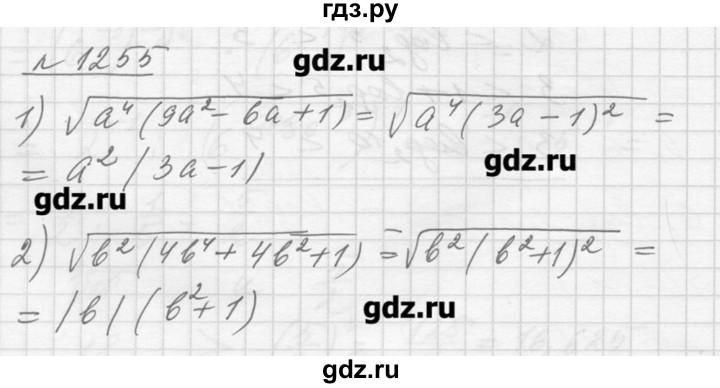 гдз.ру
№ 1255
gdz.ru
1) √(a⁴(9a² - 6a + 1)) = √(a⁴(3a - 1)²) =
= a² |3a - 1|
gdz.ru
gdz.ru
2) √(b²(4b⁴ + 4b² + 1)) = √(b²(b² + 1)²) =
= |b| (b² + 1)
gdz.ru
gdz.ru